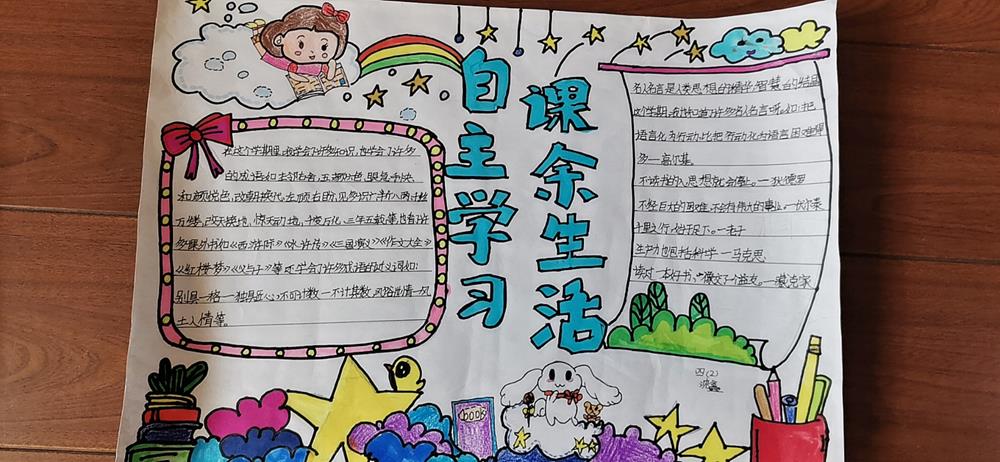 自主学习
课余生活
在这个学期里,我学会了许多知识,也学会了许多
的成语如:左邻右舍,五颜六色,眼疾手快,
和颜悦色,改朝换代,左顾右盼,见多识广,
万缕,改天换地,惊天动地,千变万化,三年五载,等也看了许
多课外书如《西游记》《水浒传》《三国演义》《作文大全》
《红楼梦》《父与子》等还学会了许多成语的近义词如:
别具一格一独具匠心不可计数一不计其数,风俗人情一风
土人情等。
名人名言是人类思想的精华,智慧的结晶
这个学期,我知道了许多名人名言呢。如:把
语言化为行动,比把行动化为语言困难得
多一高尔基。
不读书的人,思想就会停止。一狄德罗
不经巨大的困难,不会有伟大的事业。一伏尔泰
千里之行,始于足下。一老子
生产力也包括科学一马克思
读过一本好书,像交了个益友。一臧克家
四(2)
book